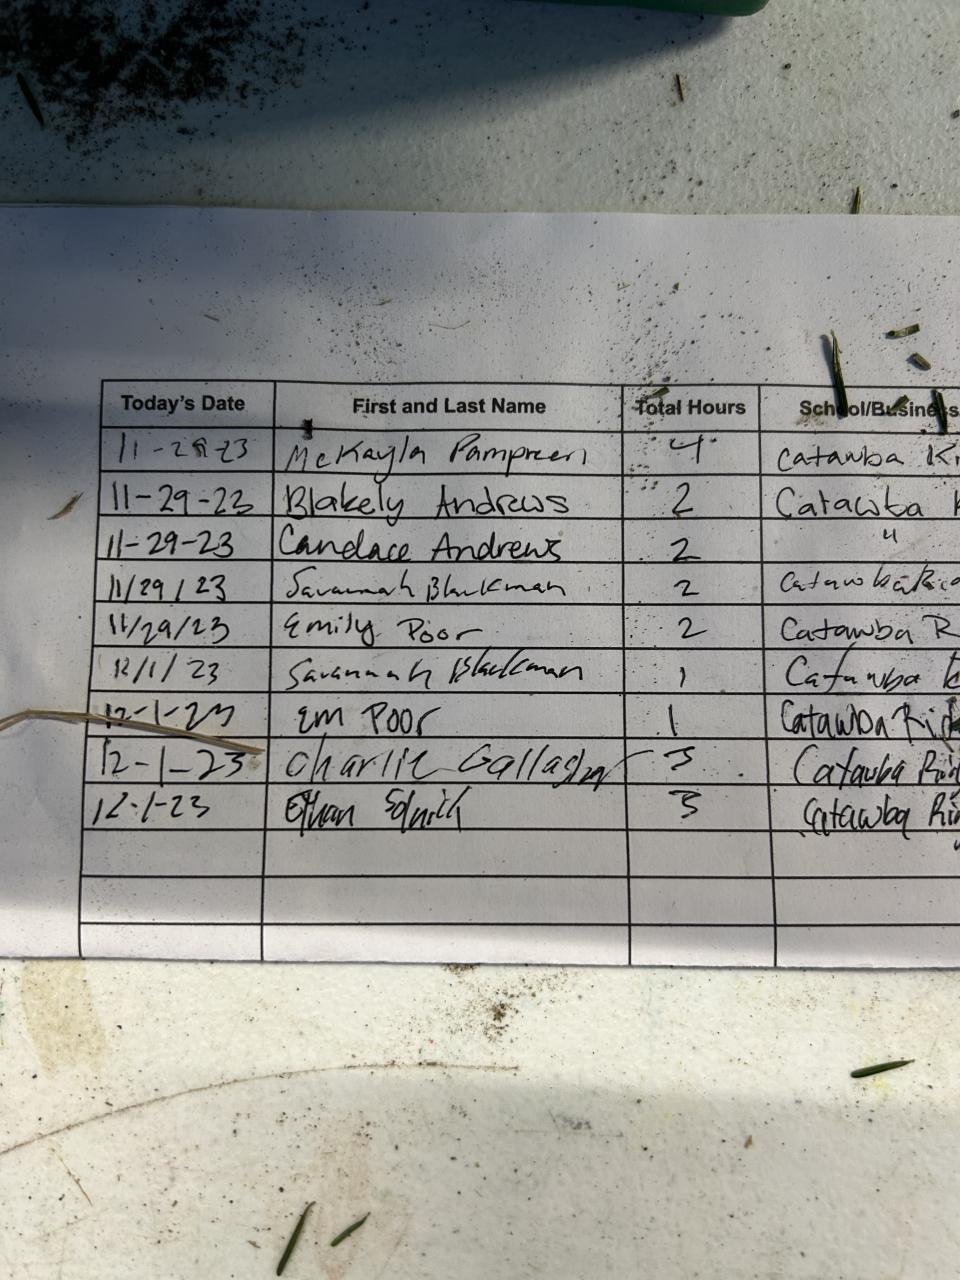 Today's Date First and Last Name Total Hours School/Business
11-29-23 McKayla Pampreen 4 Catawba Ri
11-29-23 Blakely Andrews 2 Catawba
11-29-23 Candace Andrews 2 "
11/29/23 Savannah Blackman 2 Catawba Rid
11/29/23 Emily Poor 2 Catawba R
12/1/23 Savannah Blackman 1 Catawba
12-1-23 Em Poor 1 Catawba Rid
12-1-23 Charlie Gallagher 3 Catawba Rid
12-1-23 Ethan 3 Catawba Ri